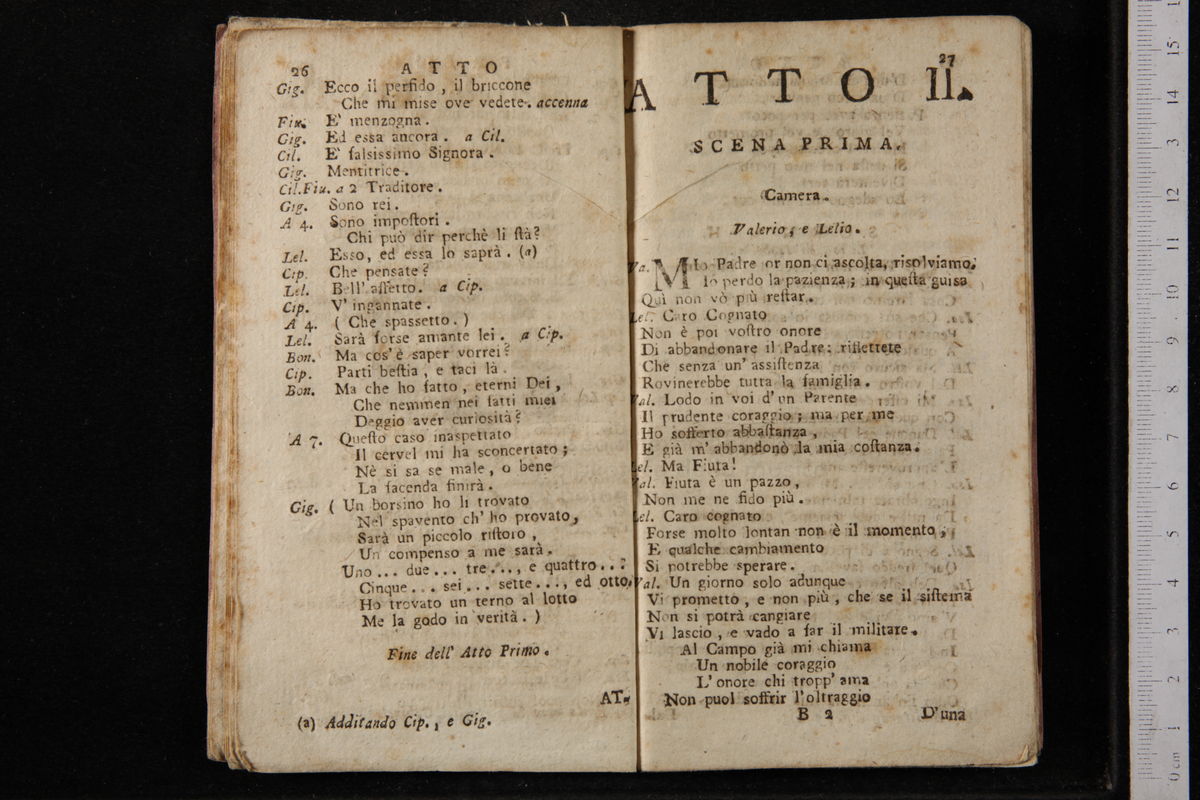 26 ATTO
Gig. Ecco il perfido , il briccone
Che mi mise ove vedete. accenna
Fiu. E' menzogna .
Gig. Ed essa ancora . a Cil.
Cil. E' falsissimo Signora .
Gig. Mentitrice .
Cil.Fiu. a 2 Traditore .
Gig. Sono rei .
A 4. Sono impoſtori .
Chi può dir perchè li ſtà?
Lel. Esso, ed essa lo saprà . (a)
Cip. Che pensate ?
Lel. Bell' assetto . a Cip.
Cip. V' ingannate .
A 4. ( Che spassetto . )
Lel. Sarà forse amante lei . a Cip.
Bon. Ma cos' è saper vorrei ?
Cip. Parti beſtia , e taci là .
Bon. Ma che ho fatto , eterni Dei ,
Che nemmen nei fatti miei
Deggio aver curiosità ?
A 7. Queſto caso inaspettato
Il cervel mi ha sconcertato ;
Nè si sa se male , o bene
La facenda finirà .
Gig. ( Un borsino ho li trovato
Nel spavento ch' ho provato,
Sarà un piccolo riſtoro ,
Un compenso a me sarà .
Uno ... due ... tre ..., e quattro ...
Cinque ... sei ... sette ..., ed otto,
Ho trovato un terno al lotto
Me la godo in verità . )
Fine dell' Atto Primo .
AT-
(a) Additando Cip. , e Gig.
27
ATTO II.
SCENA PRIMA.
Camera .
Valerio , e Lelio .
Va. MIo Padre or non ci ascolta, risolviamo.
Io perdo la pazienza ; in queſta guisa
Qui non vò più reſtar .
Lel. Caro Cognato
Non è poi voſtro onore
Di abbandonare il Padre: riflettete
Che senza un' assiſtenza
Rovinerebbe tutta la famiglia .
Val. Lodo in voi d' un Parente
Il prudente coraggio ; ma per me
Ho sofferto abbaſtanza ,
E già m' abbandonò la mia coſtanza .
Lel. Ma Fiuta !
Val. Fiuta è un pazzo ,
Non me ne fido più .
Lel. Caro cognato
Forse molto lontan non è il momento ,
E qualche cambiamento
Si potrebbe sperare .
Val. Un giorno solo adunque
Vi prometto , e non più , che se il siſtema
Non si potrà cangiare
Vi lascio , e vado a far il militare .
Al Campo già mi chiama
Un nobile coraggio
L' onore chi tropp' ama
Non puol soffrir l'oltraggio
B 2 D'una
0 cm 1 2 3 4 5 6 7 8 9 10 11 12 13 14 15